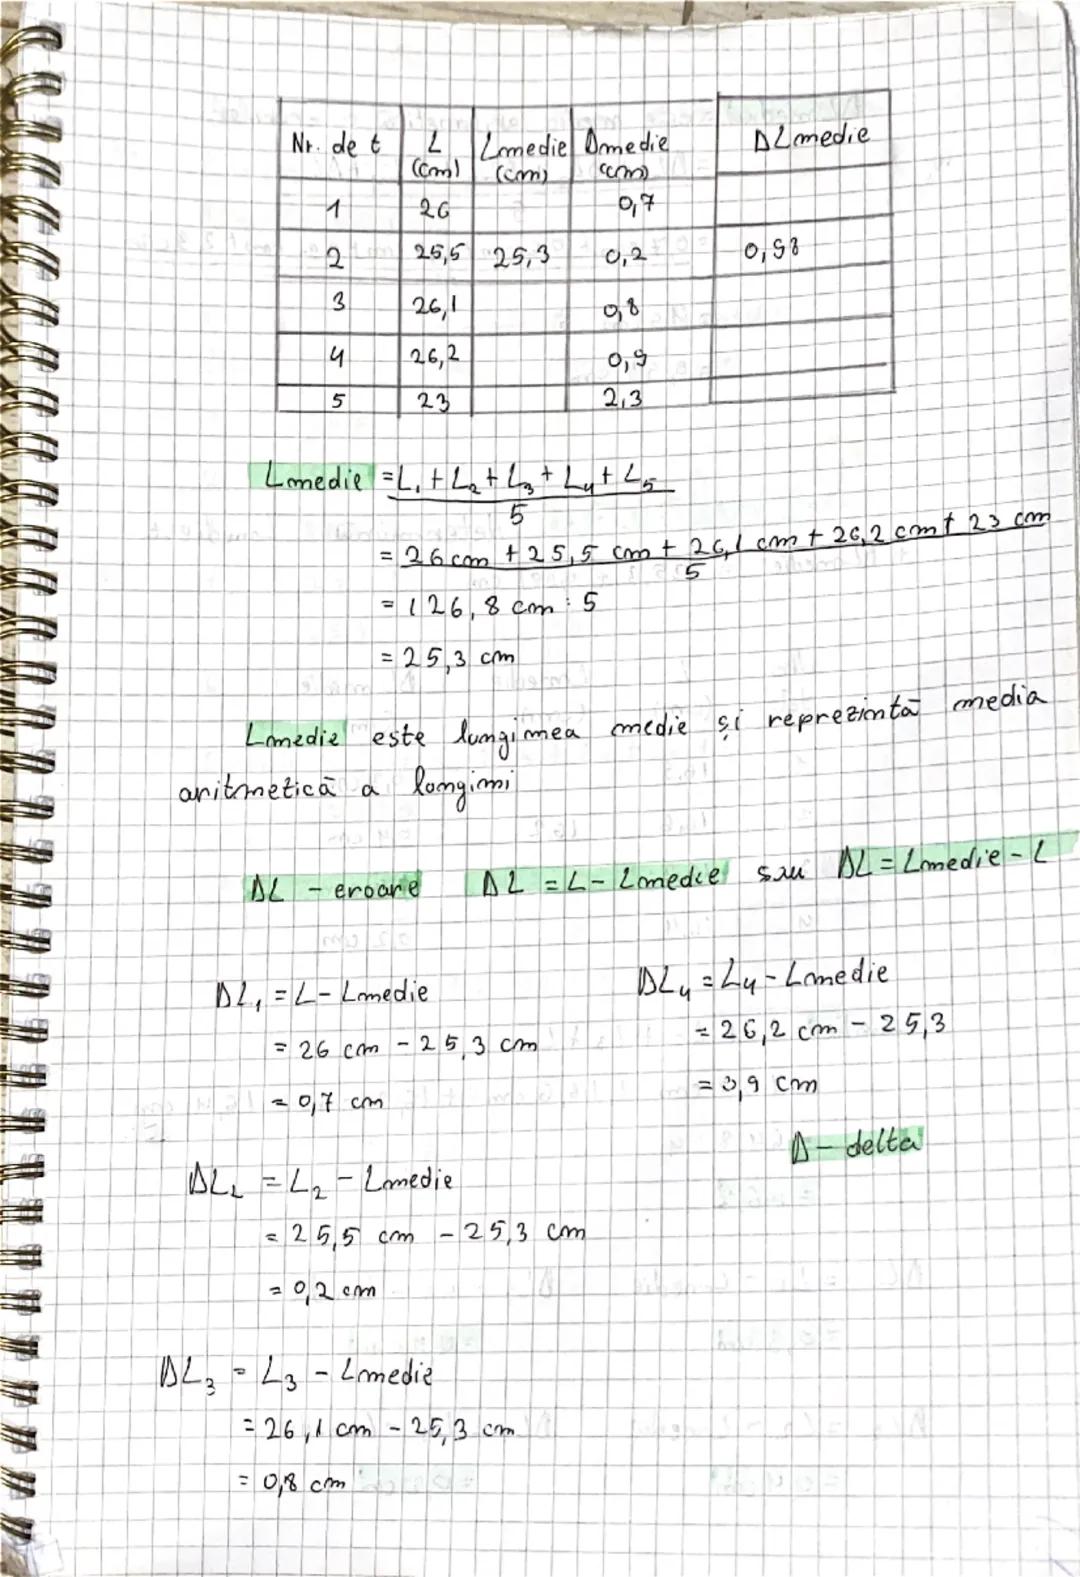 Nr. de t L (cm) Lmedie (cm) Dmedie (cm) ΔLmedie
1 26 0,7
2 25,5 25,3 0,2 0,98
3 26,1 0,8
4 26,2 0,9
5 23 2,3
Lmedie = L₁ + L₂ + L₃ + L₄ + L₅
5
= 26 cm + 25,5 cm + 26,1 cm + 26,2 cm + 23 cm
5
= 126,8 cm : 5
= 25,3 cm
Lmedie este lungimea medie și reprezintă media
aritmetică a lungimi
ΔL - eroare ΔL = L - Lmedie sau ΔL = Lmedie - L
ΔL₁ = L - Lmedie
= 26 cm - 25,3 cm
= 0,7 cm
ΔL₂ = L₂ - Lmedie
= 25,5 cm - 25,3 cm
= 0,2 cm
ΔL₃ = L₃ - Lmedie
= 26,1 cm - 25,3 cm
= 0,8 cm
ΔL₄ = L₄ - Lmedie
= 26,2 cm - 25,3
= 0,9 cm
Δ - delta